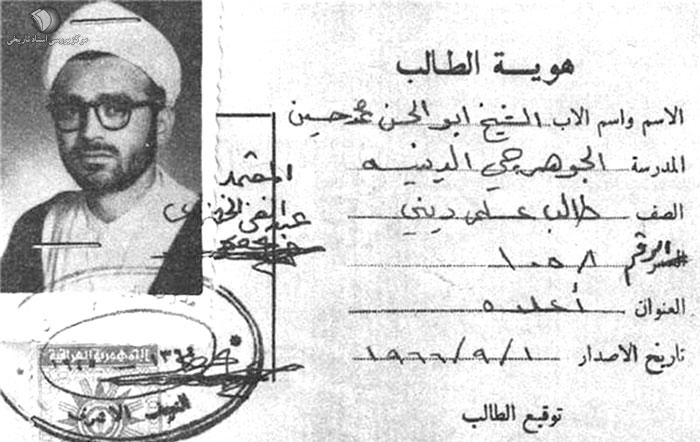 مرکز بررسی اسناد تاریخی
هوية الطالب
الاسم واسم الاب الشيخ ابو الحسن محمد حسين
المدرسة الجوهرجي الدينيه
الصف طالب علم ديني
الرقم ١٠٥٨
العنوان أعلاه
تاريخ الاصدار ١٩٦٦/٩/١
توقيع الطالب
المعتمد
الجمهورية العراقية
النجف الاشرف